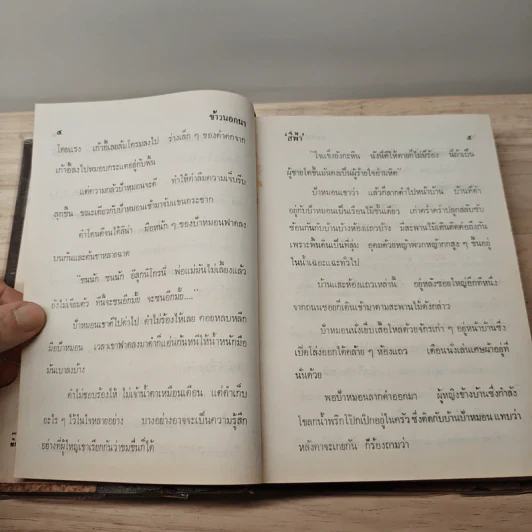 ๔
ข้าวนอกนา
โดยแรง เก้าอี้เลยล้มโครมลงไป ร่างเล็ก ๆ ของดำตกจาก
เก้าอี้ลงไปหมอบกระแตอยู่กับพื้น
แต่ความกลัวป้าหมอนจะตี ทำให้ดำลืมความเจ็บรีบ
ลุกขึ้น ขณะเดียวกับป้าหมอนเข้ามาจับแขนกระชาก
ดำโดนตีจนได้สิน่า มือหนัก ๆ ของป้าหมอนฟาดลง
บนก้นและต้นขาหลายฉาด
"ซนนัก ซนนัก อีลูกนิโกรนี่ พ่อแม่มันไม่เลี้ยงแล้ว
ยังไม่เจียมตัว ทีนี้จะซนอีกมั้ย จะซนอีกมั้ย...."
ป้าหมอนเขาตีไปด่าไป ดำไม่ร้องไห้เลย คอยหลบหลีก
มือป้าหมอน เวลาเขาฟาดลงมาดำก็แอ่นก้นหนีให้น้ำหนักมือ
มันเบาลงบ้าง
ดำไม่ชอบร้องไห้ ไม่เจ้าน้ำตาเหมือนเดือน แต่ดำเก็บ
อะไร ๆ ไว้ในใจหลายอย่าง บางอย่างอาจจะเป็นความรู้สึก
อย่างที่ผู้ใหญ่เขาเรียกกันว่าขมขื่นก็ได้
'สีฟ้า'
๕
"ใจแข็งยังกะหิน นังนี่ตีให้ตายก็ไม่มีร้อง นี่ถ้าเป็น
ผู้ชายโตขึ้นมันคงเป็นผู้ร้ายใจอำมหิต"
ป้าหมอนเขาว่า แล้วก็ลากดำไปหน้าบ้าน บ้านที่ดำ
อยู่กับป้าหมอนเป็นเรือนไม้ชั้นเดียว เก่าคร่ำคร่าปลูกสลับซับ
ซ้อนกันกับบ้านบ้างห้องแถวบ้าง มีสะพานไม้เดินติดต่อถึงกัน
เพราะพื้นดินเป็นที่ลุ่ม อุดมด้วยหญ้าพวกหญ้ากกสูง ๆ ขึ้นอยู่
ในน้ำเฉอะแฉะทั่วไป
บ้านและห้องแถวเหล่านี้ อยู่หลังซอยใหญ่อีกทีหนึ่ง
จากถนนซอยก็เดินเข้ามาตามสะพานไม้ดังกล่าว
ป้าหมอนนั่งเย็บเสื้อโหลด้วยจักรเก่า ๆ อยู่หน้าบ้านซึ่ง
เปิดโล่งออกโต้คล้าย ๆ ห้องแถว เดือนนั่งเล่นเศษผ้าอยู่ที่
นั่นด้วย
พอป้าหมอนลากดำออกมา ผู้หญิงข้างบ้านซึ่งกำลัง
โขลกน้ำพริกโป๊กเป๊กอยู่ในครัว ซึ่งติดกับบ้านป้าหมอน แทบว่า
หลังคาจะเกยกัน ก็ร้องถามว่า